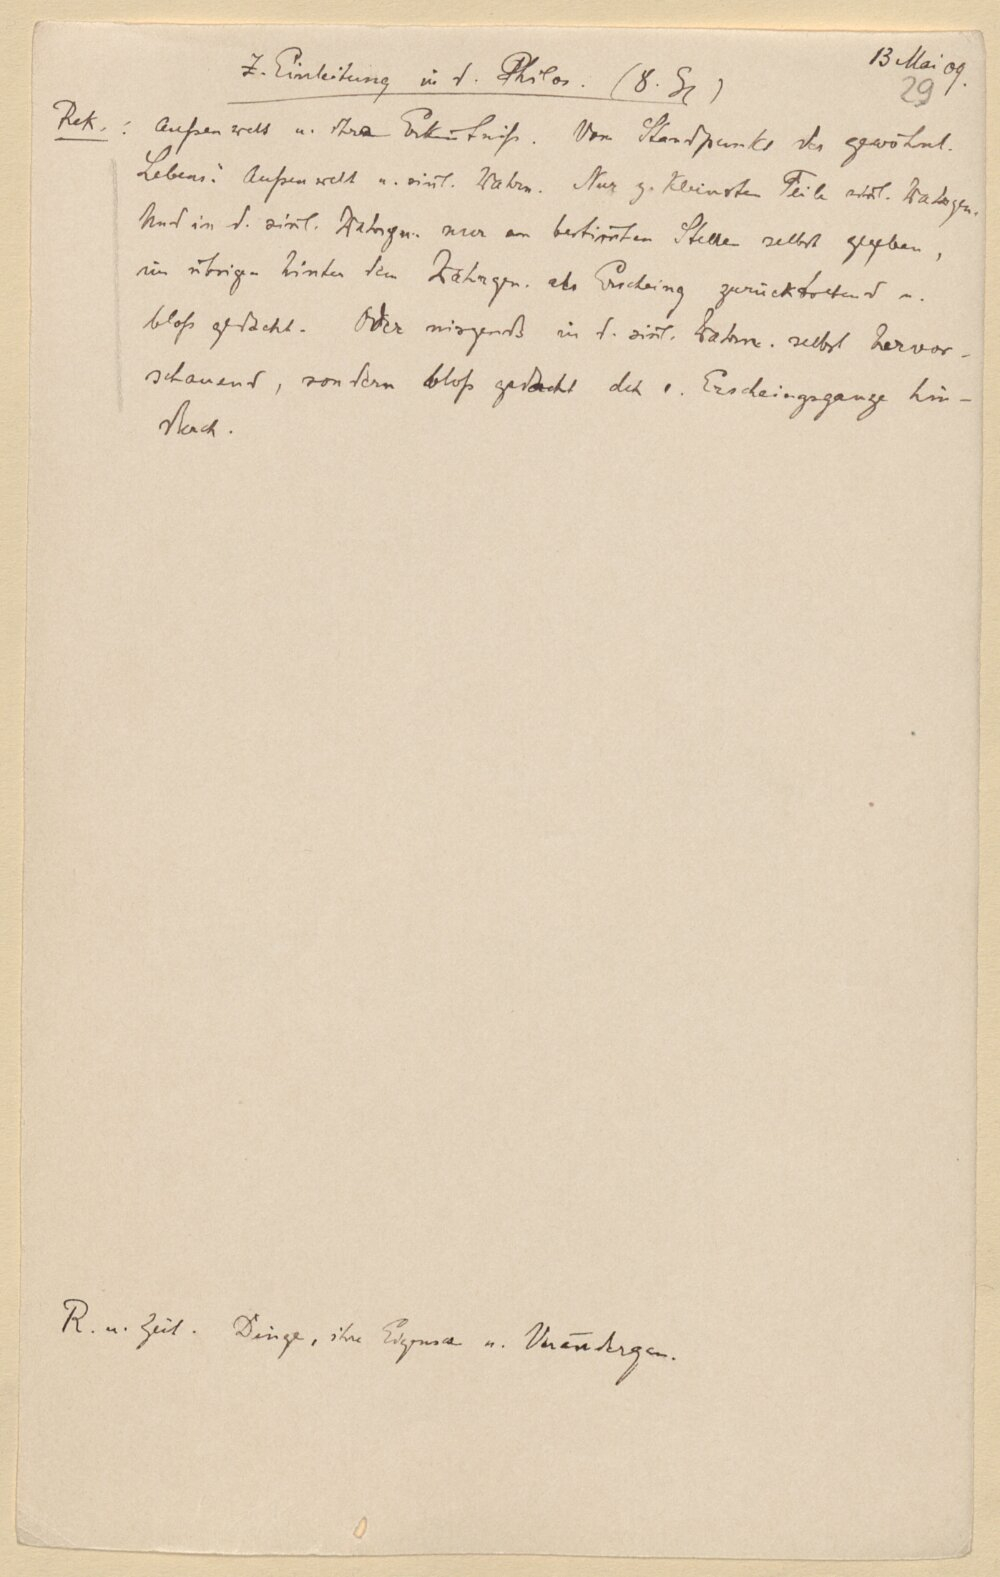 13 Mai 09.
29
Z. Einleitung in d. Philos. (8. St)
Rek.: Außenwelt u. ihre Erkenntniß. Vom Standpunkt des gewöhnl.
Lebens: Außenwelt u. sinl. Wahrn. Nur z. kleinsten Teile sinl. Wahrgen.
Und in d. sinl. Wahrgen. nur an bestim̅ten Stellen selbst gegeben,
im übrigen hinter dem Wahrgen. als Erscheing zurücktretend u.
bloß gedacht. Oder nirgends in d. sinl. Wahrn. selbst hervor-
schauend, sondern bloß gedacht dch d. Erscheingsganze hin-
durch.
R. u. Zeit. Dinge, ihre Eigensch u. Verändergen.